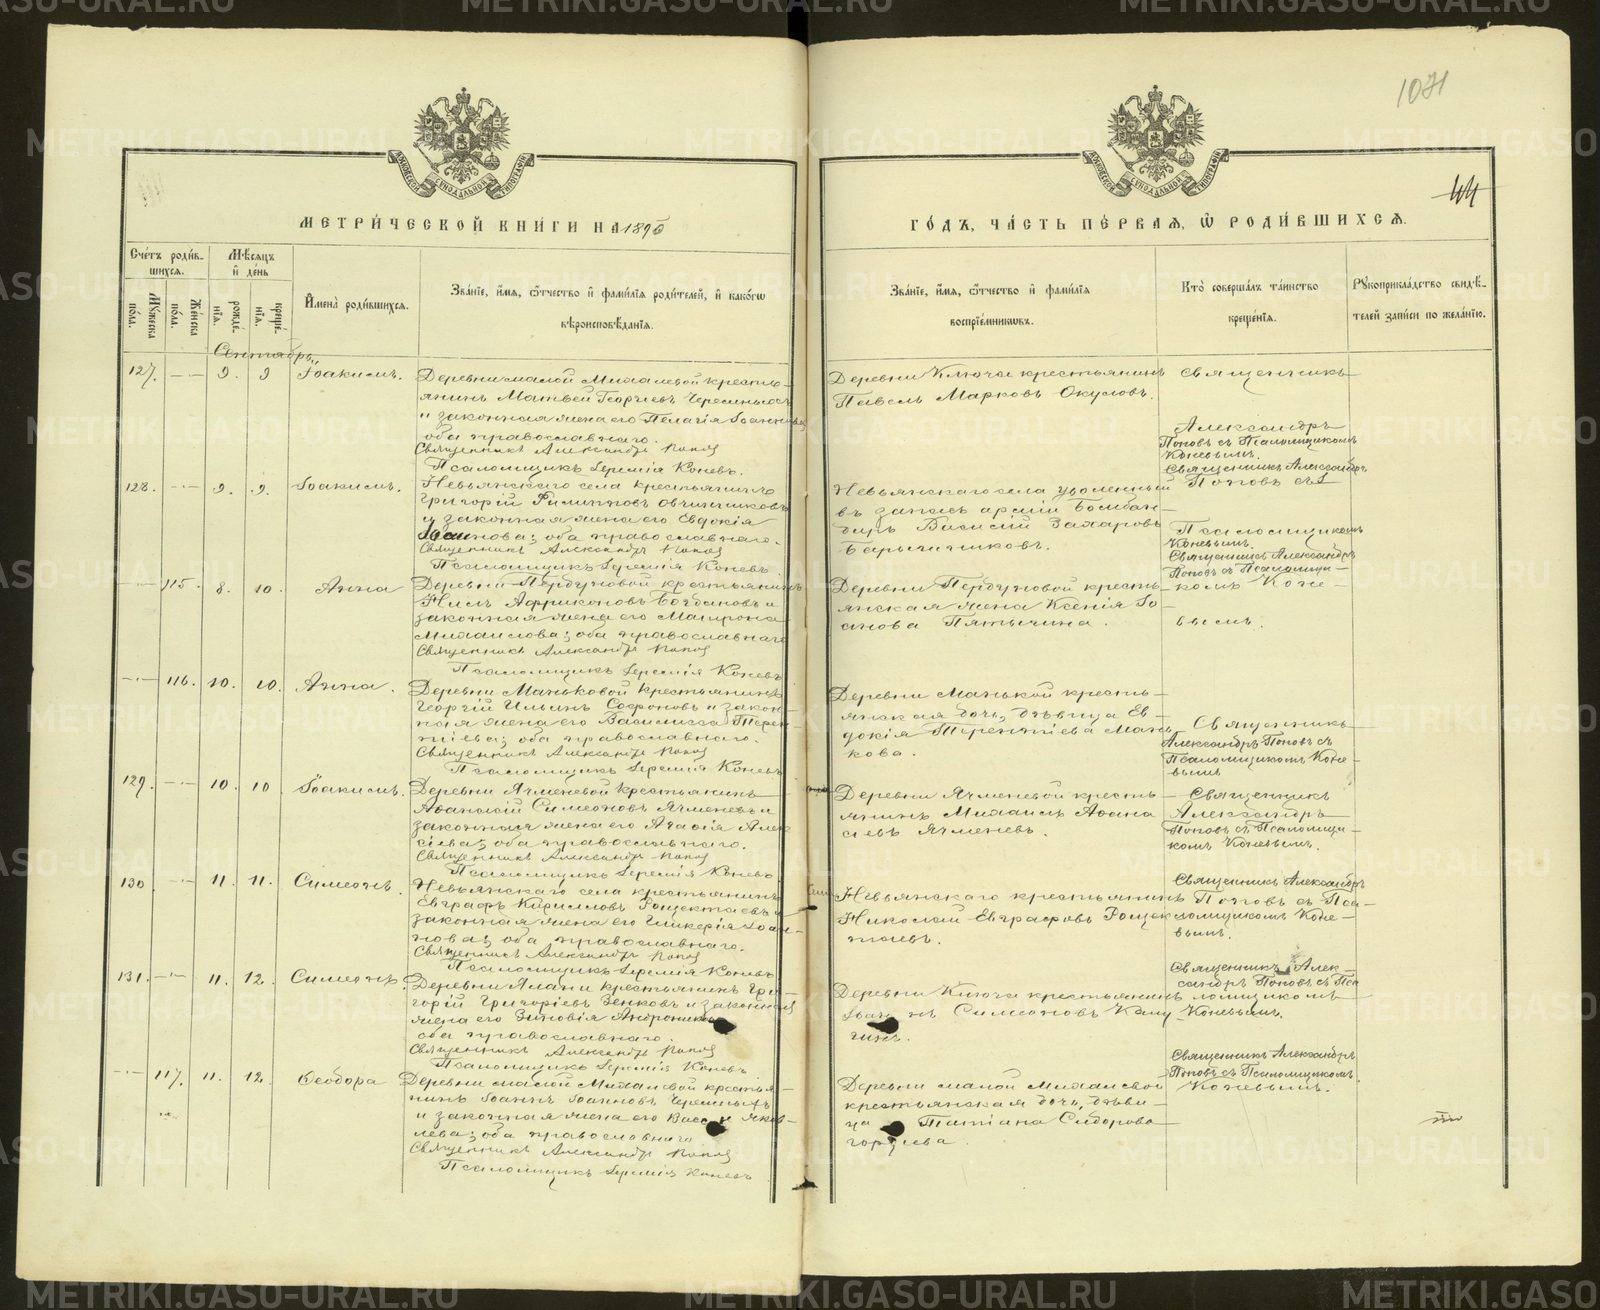 METRIKI.GASO-URAL.RU
1071
44
МЕТРИ́ЧЕСКОЙ КНИ́ГИ НА 1896
ГО́ДЪ, ЧА́СТЬ ПЕ́РВАЯ, Ѡ РОДИ́ВШИХСѦ.
Сче́тъ роди́в-
шихсѧ.
Мѣ́сѧцъ
и҆ де́нь
Мꙋ́жеска по́ла.
Же́нска по́ла.
рожде́-нїѧ.
креще́-нїѧ.
И҆мена̀ роди́вшихсѧ.
Зва́нїе, и҆́мѧ, ѻ҆́тчество и҆ фами́лїѧ роди́телей, и҆ како́гѡ
вѣроисповѣ́данїѧ.
Зва́нїе, и҆́мѧ, ѻ҆́тчество и҆ фами́лїѧ
воспрїе́мникѡвъ.
Кто̀ соверша́лъ та́инство
креще́нїѧ.
Рꙋкоприкла́дство свидѣ́-
телей за́писи по жела́нїю.
Сентябрь
127. 9. 9 Іоакимъ.
Деревни малой Михалевой крестья-
нинъ Матвей Георгіевъ Черемныхъ
и законная жена его Пелагія Іоаннова
оба православнаго.
Священникъ Александръ Попов
Псаломщикъ Іеремія Коневъ.
Деревни Ключи крестьянинъ
Павелъ Марковъ Окуловъ.
Священникъ
Александръ
Поповъ съ Псаломщикомъ
Коневымъ.
128. 9. 9. Іоакимъ.
Невьянскаго села крестьянинъ
Григорій Филипповъ Овчинниковъ
и законная жена его Евдокія
оба православнаго.
Священникъ Александръ Попов
Псаломщикъ Іеремія Коневъ
Невьянскаго села уволенный
въ запасъ арміи Бомбан-
диръ Василій Захаровъ
Священникъ Александръ
Поповъ съ
Псаломщикомъ
Коневымъ.
115. 8. 10. Анна
крестьянинъ
Африкановъ Богдановъ и
законная жена его Матрона
Михаилова; оба православнаго
Священникъ Александръ Попов
Псаломщикъ Іеремія Коневъ
Деревни кресть-
янская жена Ксенія Іо-
анова
Священникъ Александръ
Поповъ съ Псаломщи-
комъ Коне-
вымъ.
116. 10. 10. Анна.
Деревни Маньковой крестьянинъ
Георгій Ильинъ Софроновъ и закон-
ная жена его Василисса Терен-
тіева; оба православнаго.
Священникъ Александръ Попов
Псаломщикъ Іеремія Коневъ
Деревни Манькой кресть-
янская дочь, дѣвица Ев-
докія Терентіева Мань-
кова.
Священникъ
Александръ Поповъ съ
Псаломщикомъ Коне-
вымъ
129. 10. 10 Іоакимъ.
Деревни Ячменевой крестьянинъ
Аѳанасій Симеоновъ Ячменевъ и
законная жена его Агафія Алек-
сіева; оба православнаго.
Священникъ Александръ Попов
Псаломщикъ Іеремія Коневъ
Деревни Ячменевой кресть-
янинъ Михаилъ Аѳана
сіевъ Ячменевъ.
Священникъ
Александръ
Поповъ съ Псаломщи-
комъ Коневымъ.
130 11. 11. Симеонъ.
Невьянскаго села крестьянинъ
Евграфъ Кирилловъ Рощектаевъ и
законная жена его Гликерія Іоан-
нова; оба православнаго.
Священникъ Александръ Попов
Псаломщикъ Іеремія Коневъ
Невьянскаго крестьянинъ
Николай Евграфовъ Рощек-
таевъ.
Священникъ Александръ
Поповъ съ Пса-
ломщикомъ Коне-
вымъ.
131. 11. 12. Симеонъ.
Деревни Ялани крестьянинъ Гри-
горій Григоріевъ Зенковъ и законная
жена его Зиновія
оба православнаго.
Священникъ Александръ Попов
Псаломщикъ Іеремія Коневъ
Деревни Ключи крестьянинъ
Симеоновъ
Священникъ Алек-
сандръ Поповъ съ Пса
ломщикомъ
Коневымъ.
117. 11. 12. Ѳеодора
Деревни малой Михалевой крестья-
нинъ Іоаннъ Іоанновъ Черемныхъ
и законная жена его Яков-
лева; оба православнаго
Священникъ Александръ Попов
Псаломщикъ Іеремія Коневъ
Деревни малой Михалевой
крестьянская дочь, дѣви-
ца Татіана Сидорова
Священникъ Александръ
Поповъ съ Псаломщикомъ
Коневымъ.